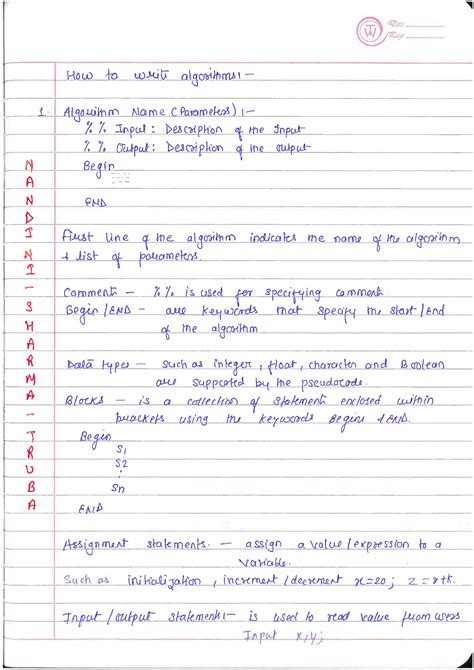 TW
How to write algorithms :-
1. Algorithm Name (Parameters) :-
%% Input : Description of the Input
%% Output : Description of the output
Begin
END
First line of the algorithm indicates the name of the algorithm
& list of parameters.
Comment - %% is used for specifying comment.
Begin / END - are keywords that specify the start / End
of the algorithm
Data types - such as integer, float, character and Boolean
are supported by the pseudocode.
Blocks - is a collection of statement enclosed within
brackets using the keywords Begin & END.
Begin
S1
S2
:
Sn
END
Assignment statements. - assign a value / expression to a
variable.
Such as initialization, increment / decrement x=20; z=r+h.
Input / output statement :- is used to read value from users
Input x,y;
NANDINI-SHARMA-TRUBA